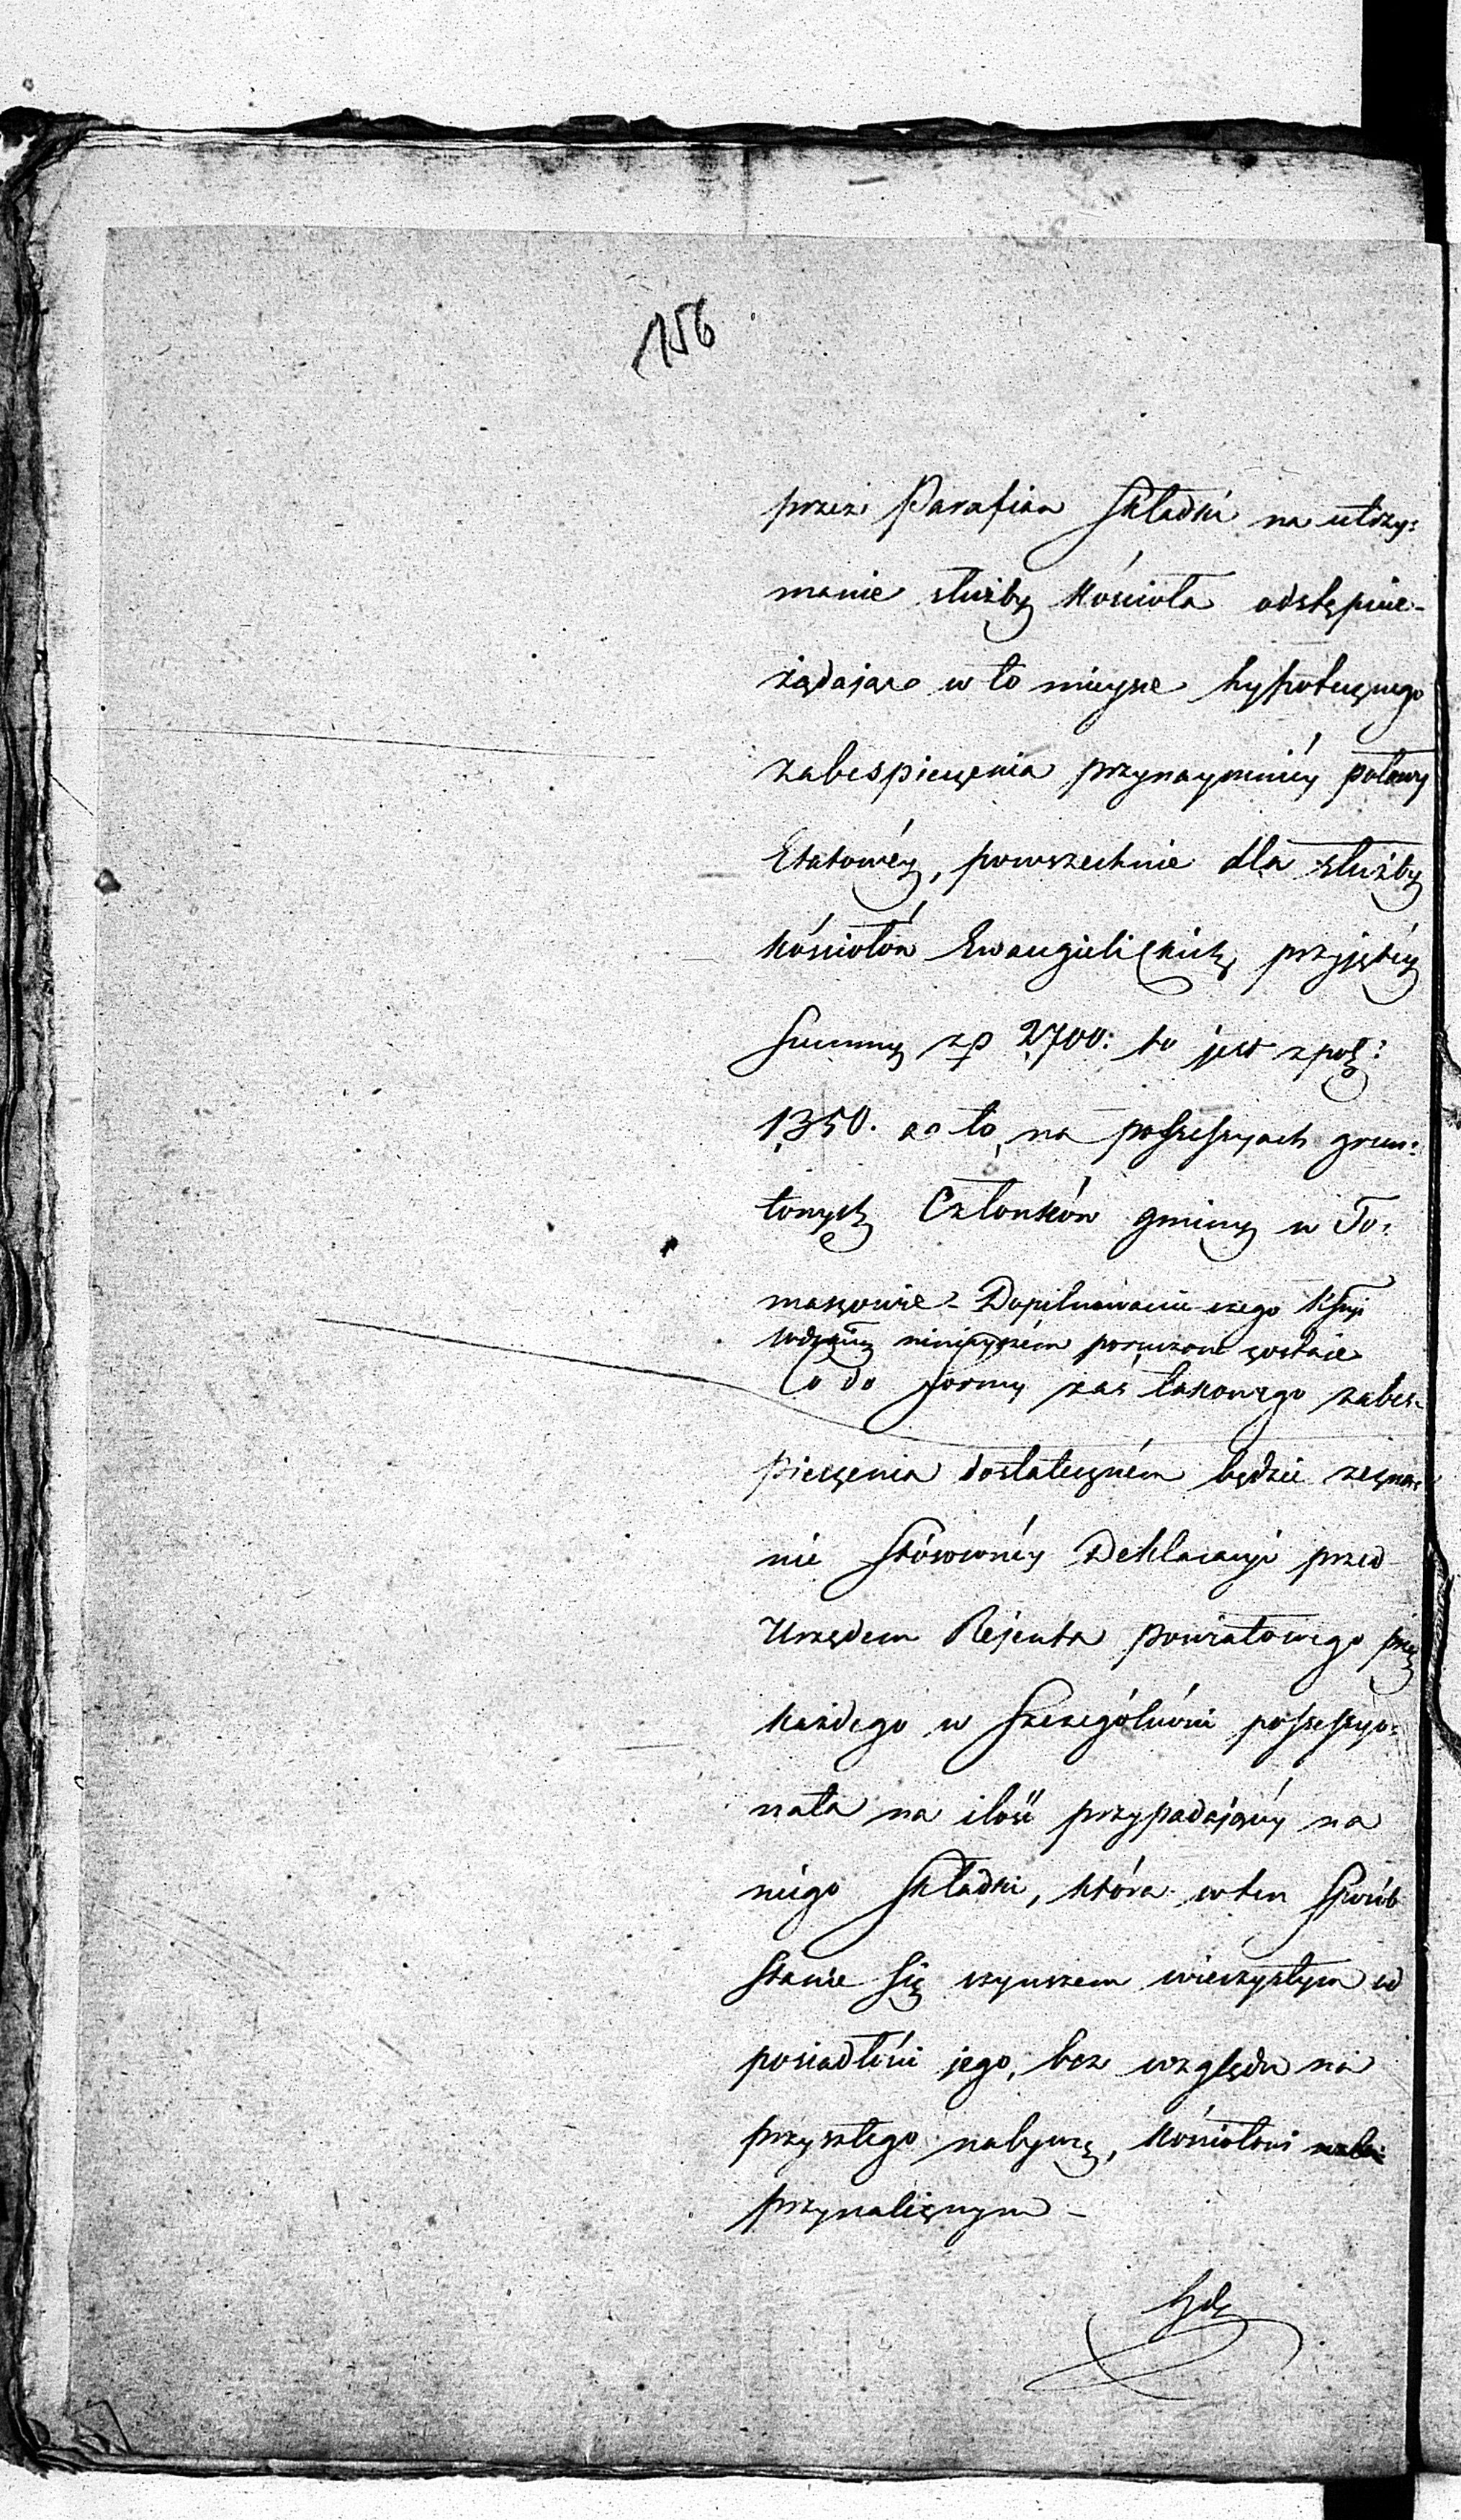 156
przez Parafian Składki na utrzy:
manie służby Kościoła odstępuie-
żądaiąc w to mieysce hypotecznego
zabespieczenia przynaymniéy połowy
Etatowéy, powszechnie dla służby
Kościołów Ewangielickich przyjętéy
Summy zp 2700: to jest zpol:
1350. a to na possessyach grun:
towych Członków gminy w To:
maszowie - Dopilnowanie czego Kssji
Wdztwa ninieyszém poruczone zostaie
Co do formy zaś takowego zabes:
pieczenia dostateczném będzie zezna:
nie stósownéy Deklaracyi przed
Urzędem Rejenta powiatowego przez
każdego w Szczególności possessyo:
nata na ilość przypadaiącéy na
niego Składki, która w ten Sposób
stanie się czynszem wieczystym w
posiadłości jego, bez względu na
przyszłego nabywcę, Kościołowi
przynależnym -